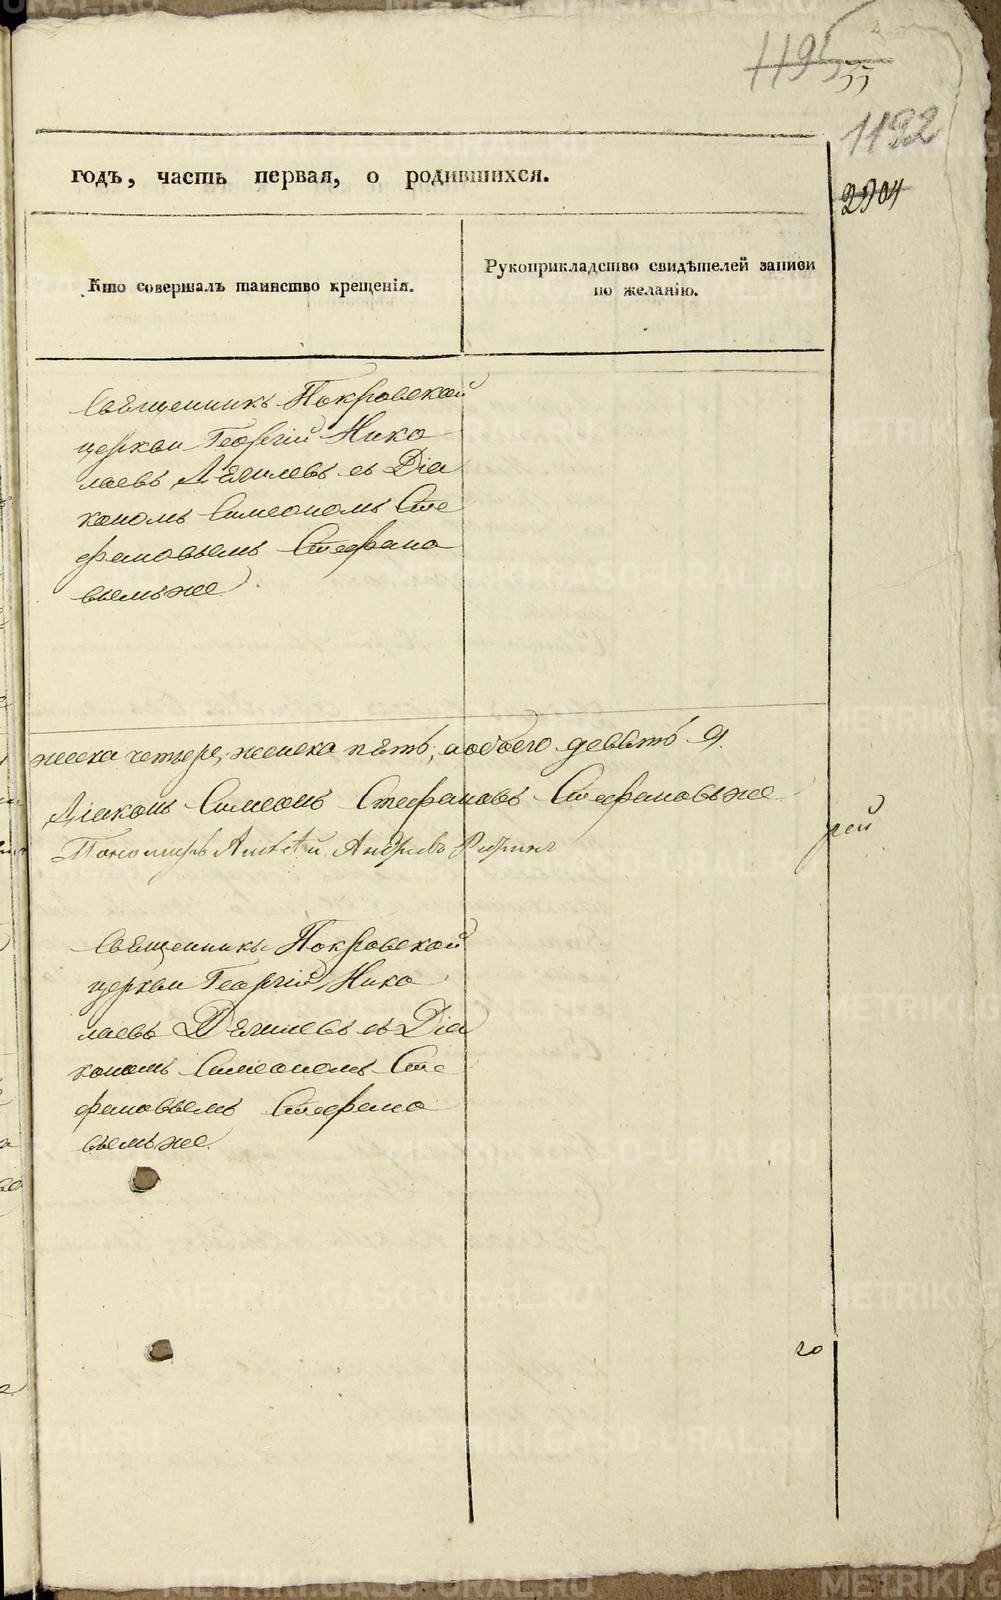 1195
55
1192
2204
годъ, часть первая, о родившихся.
Кто совершалъ таинство крещенія.
Рукоприкладство свидѣтелей записи
по желанію.
Священникъ Покровской
церкви Георгій Нико
лаевъ съ Діа
кономъ Симеономъ Сте
фановымъ Стефано
вымъ же
жеска четыре, женска пять, обоего девять 9.
Діаконъ Симеонъ Стефановъ Стефановъ же
Пономарь Андреевъ
рей
Священникъ Покровской
церкви Георгій Нико
лаевъ съ Діа
кономъ Симеономъ Сте
фановымъ Стефано
вымъ же
20
METRIKI.GASO-URAL.RU